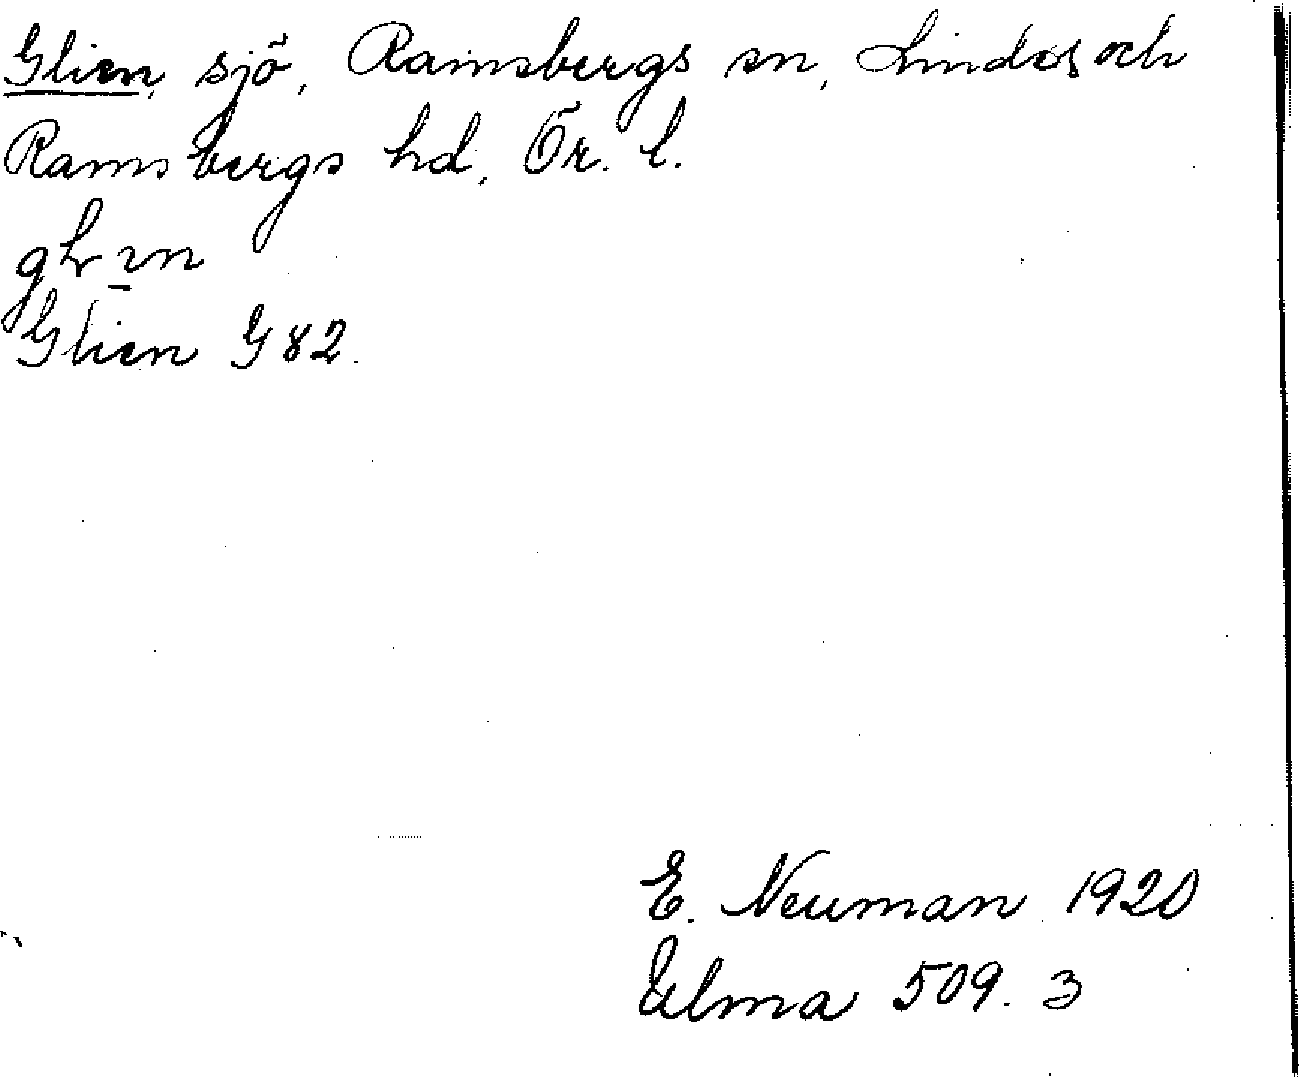 Glien, sjö, Ramsbergs sn, Lindes och
Ramsbergs hd, Ör. l.
Glien G 82.
E. Neuman 1920
Ulma 509. 3